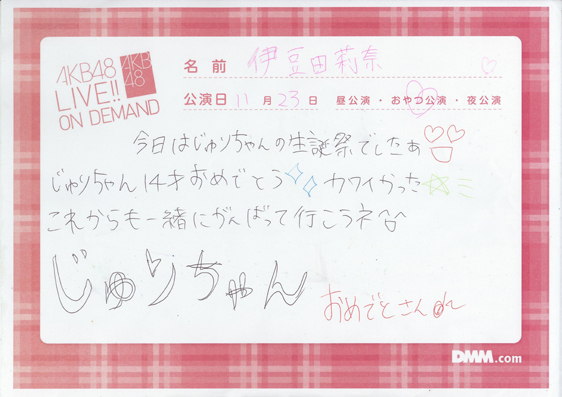 AKB48
LIVE!!
ON DEMAND
AKB
48
名前 伊豆田莉奈
公演日 11月23日 昼公演・おやつ公演・夜公演
今日はじゅりちゃんの生誕祭でしたぁ
じゅりちゃん14才おめでとう カワイかった
これからも一緒にがんばって行こうネ
じゅりちゃん
おめでとさん
DMM.com